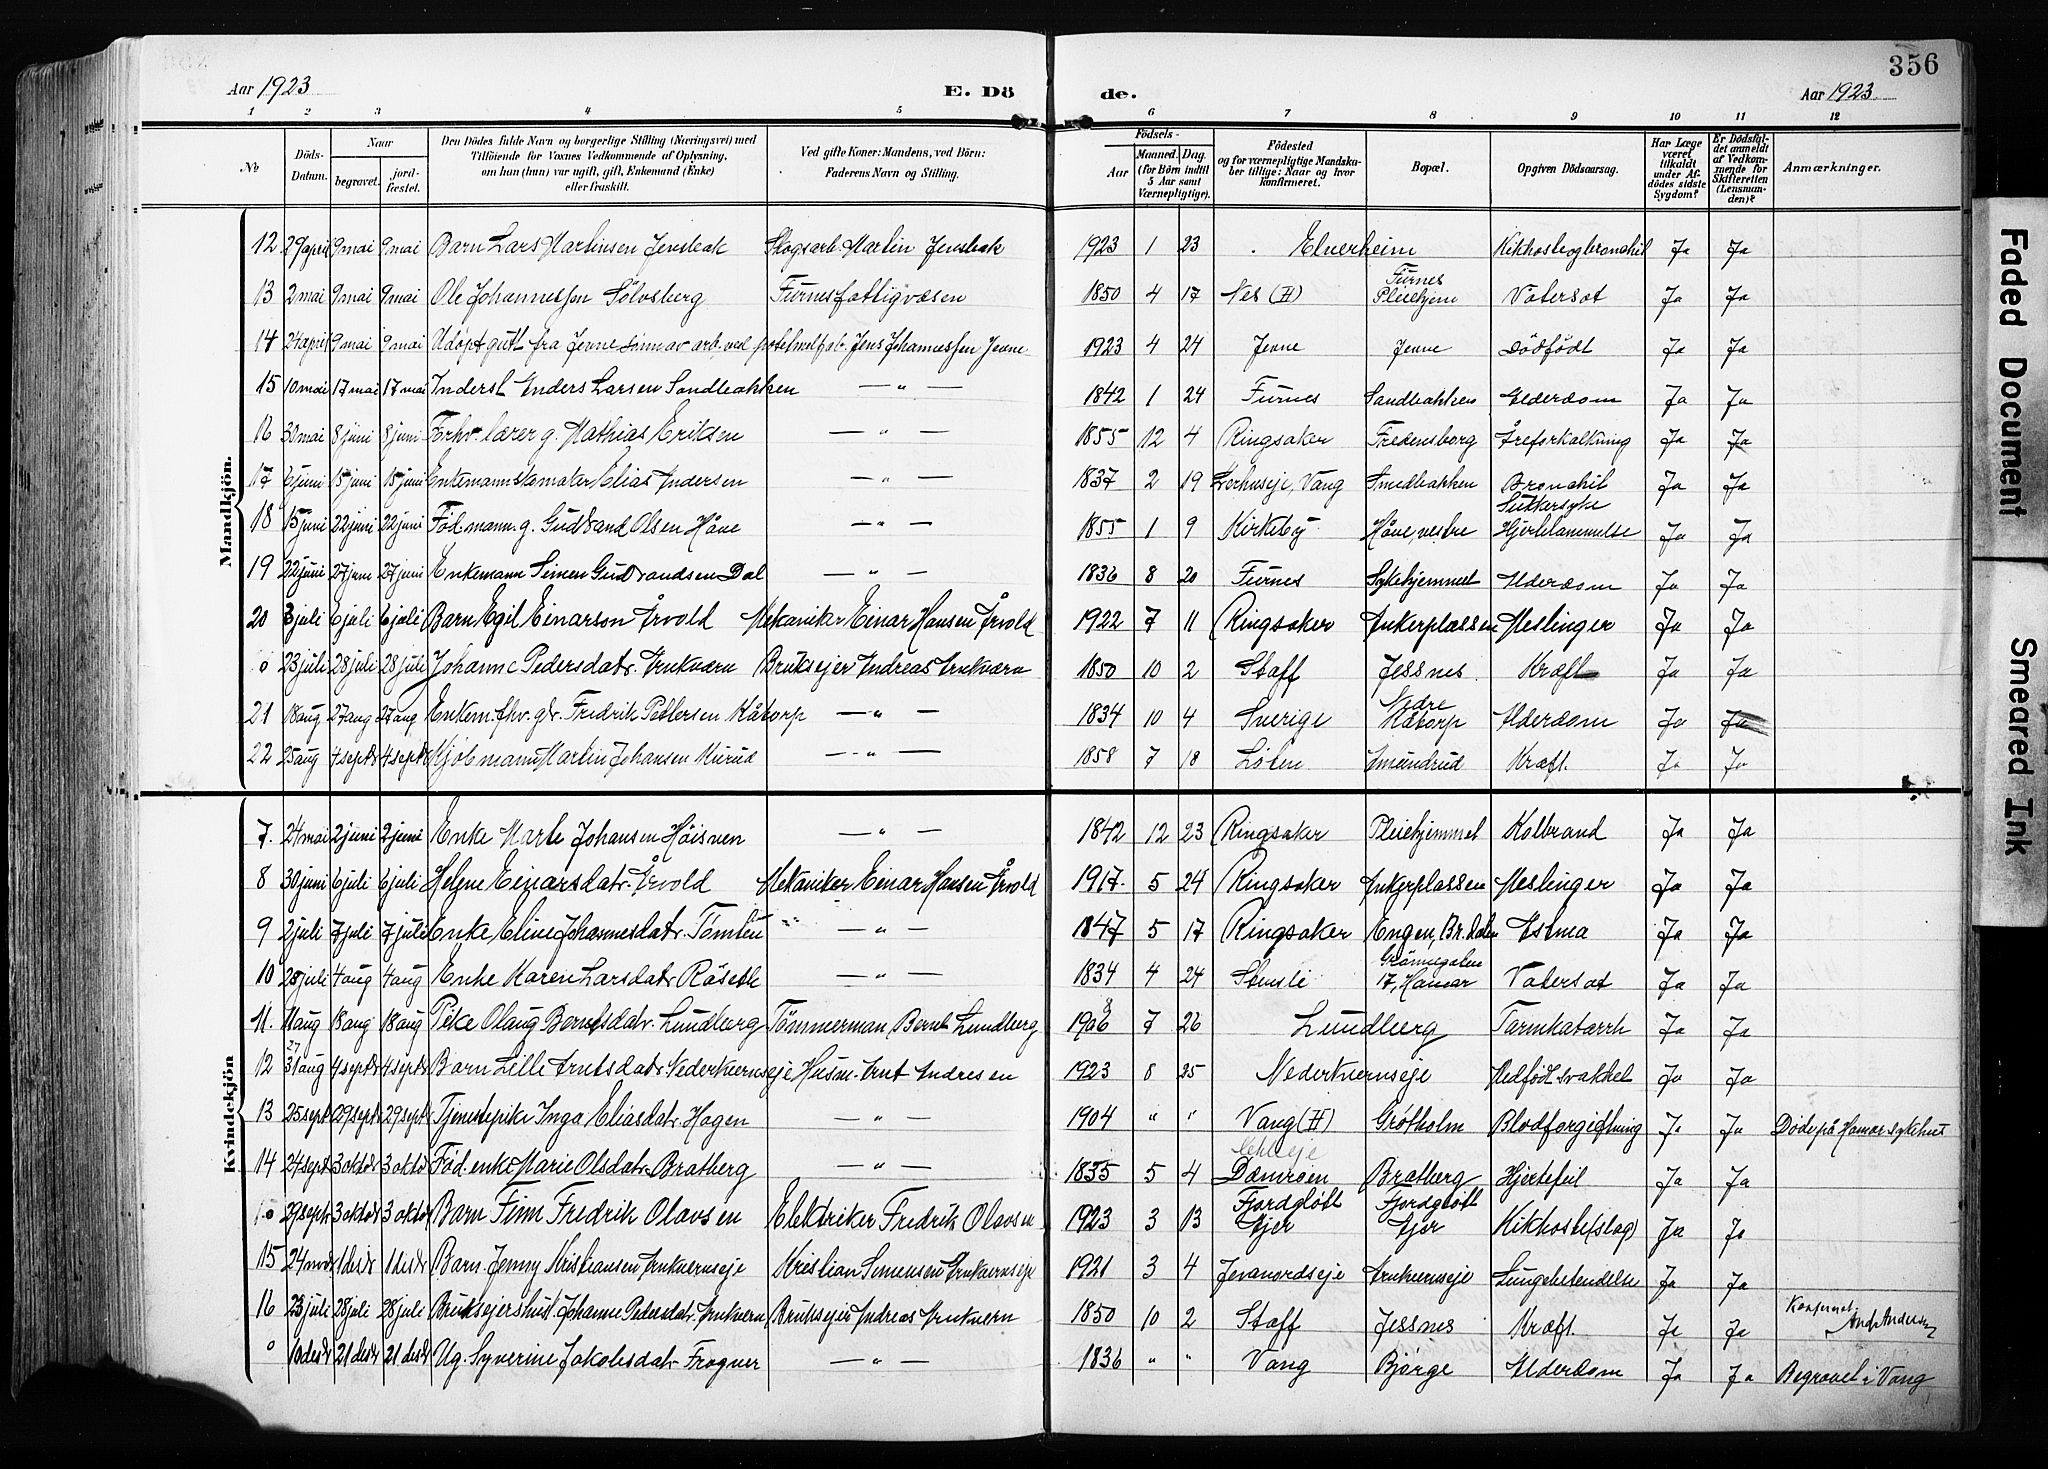 356
Aar 1923
E. Dö de.
Aar 1923.
1 2 3 4 5 6 7 8 9 10 11 12
No
Döds-Datum.
Naar
begravet.
jord-fæstet.
Den Dödes fulde Navn og borgerlige Stilling (Næringsvei) med Tilföiende for Voxnes Vedkommende af Oplysning, om hun (hun) var ugift, gift, Enkemand (Enke) eller fraskilt.
Ved gifte Koner: Mandens, ved Börn: Faderens Navn og Stilling.
Födsels-
Aar
Maaned. Dag. (for Börn indtil 5 Aar samt Værnepligtige).
Födested og for værnepligtige Mandskaber tillige: Naar og hvor konfirmeret.
Bopæl.
Opgiven Dödsaarsag.
Har Læge været tilkaldt under Afdödes sidste Sygdom?
Er Dödsfaldet anmeldt af Vedkommende for Skifteretten (Lensmanden)?
Anmærkninger.
Mandkjön.
12 29 april 9 mai 9 mai Barn Lars Martinsen Jensbak Skogsarb. Martin Jensbak 1923 1 23 Elverheim Kikhoste og bronchit Ja Ja
13 2 mai 9 mai 9 mai Ole Johannessen Sölvsberg Furnes fattigvæsen 1850 4 17 Nes (H) Furnes Pleiehjem Vatersot Ja Ja
14 24 april 9 mai 9 mai Udöpt gutt fra Jevne sönn av arb. ved potetmelfab. Jens Johannessen Jevne 1923 4 24 Jevne Jevne Dödfödt Ja Ja
15 10 mai 17 mai 17 mai Inderst Anders Larsen Sandbakken — " — 1842 1 24 Furnes Sandbakken Alderdom Ja Ja
16 30 mai 8 juni 8 juni Forhv. lærer g. Mathias Eriksen — " — 1855 12 4 Ringsaker Fredensborg Åreforkalkning Ja Ja
17 6 juni 15 juni 15 juni Enkemann skomaker Elias Andersen — " — 1837 2 19 Vang Smedbakken Bronchit Ja Ja
18 15 juni 22 juni 22 juni Föd. mann. g. Gudbrand Olsen Håve — " — 1855 1 9 Kirkeby Håve, vestre Sukkersyke Hjertelammelse Ja Ja
19 22 juni 27 juni 27 juni Enkemann Simen Gudbrandsen Dal — " — 1836 8 20 Furnes Sykehjemmet Alderdom Ja Ja
20 3 juli 6 juli 6 juli Barn Egil Einarson Årvold Mekaniker Einar Hansen Årvold 1922 7 11 Ringsaker Ankerplassen Meslinger Ja Ja
0 23 juli 28 juli 28 juli Johanne Pedersdatr. Arnkværn Bruksejer Andreas Arnkværn 1850 10 2 Staff Jessnes Kræft Ja Ja
21 18 aug 27 aug 27 aug Enkem. fhv. gbr. Fredrik Pettersen Kåtorp — " — 1834 10 4 Sverige Nedre Kåtorp Alderdom Ja Ja
22 25 aug 4 septbr 4 septbr Kjöbmann Martin Johansen Kurud — " — 1858 7 18 Löten Amundrud Kræft. Ja Ja
Kvindekjön
7. 24 mai 2 juni 2 juni Enke Marte Johansen Höisveen — " — 1842 12 23 Ringsaker Pleiehjemmet Kolbrand Ja Ja
8 30 juni 6 juli 6 juli Helene Einarsdatr. Årvold Mekaniker Einar Hansen Årvold 1917. 5 24 Ringsaker Ankerplassen Meslinger Ja Ja
9 2 juli 7 juli 7 juli Enke Eline Johannesdatr. Tömten — " — 1847 5 17 Ringsaker Engen, Br. dalen Astma Ja Ja
10 28 juli 4 aug 4 aug Enke Karen Larsdatr Röseth — " — 1834 4 24 Stensli Grönnegaten 17, Hamar Vatersot Ja Ja
11. 11 aug 18 aug 18 aug Pike Olaug Berntsdatr. Lundberg Tömmerman, Bernt Lundberg 1906 8 7 26 Lundberg Tarmkatarrh Ja Ja
12 27 31 aug 4 septbr 4 septbr Barn Lille Arntsdatr Nederkvernseje Husm. Arnt Andresen 1923 8 25 Nederkvernseje Medfödt svakhet Ja Ja
13 25 septbr 29 septbr 29 septbr Tjenestepike Inga Eliasdatr. Hagen — " — 1904 " " Vang (H) Grötholm Blodforgiftning Ja Ja Döde på Hamar sykehus
14 24 septbr 3 oktobr 3 oktobr Föd. enke Marie Olsdatr. Bratberg — " — 1835 5 4 Dæmroen Bratberg Hjertefeil Ja Ja
0 29 septbr 3 oktobr 3 oktobr Barn Finn Fredrik Olavsen Elektriker Fredrik Olavsen 1923 3 13 Fjordglött Fjordglött Kikhoste (slag) Ja Ja
15 24 novbr 1 desbr 1 desbr Barn. Jenny Kristiansen Arnkvernseje Kristian Simensen Arnkvernseje 1921 3 4 Jevanordseje Arnkvernseje Lungebetendelse Ja Ja
16 23 juli 28 juli 28 juli Bruksejershust. Johanne Pedersdatr. Arnkvern Bruksejer Andreas Arnkvern 1850 10 2 Staff Jessnes Kræft. Ja Ja Konferert Andr. Andersen
0 10 desbr 21 desbr 21 desbr Ug. Syverine Jakobsdatr Frogner — " — 1836 " " Vang Bjørge Alderdom Ja Ja Begravet i Vang
Faded Document
Smeared Ink